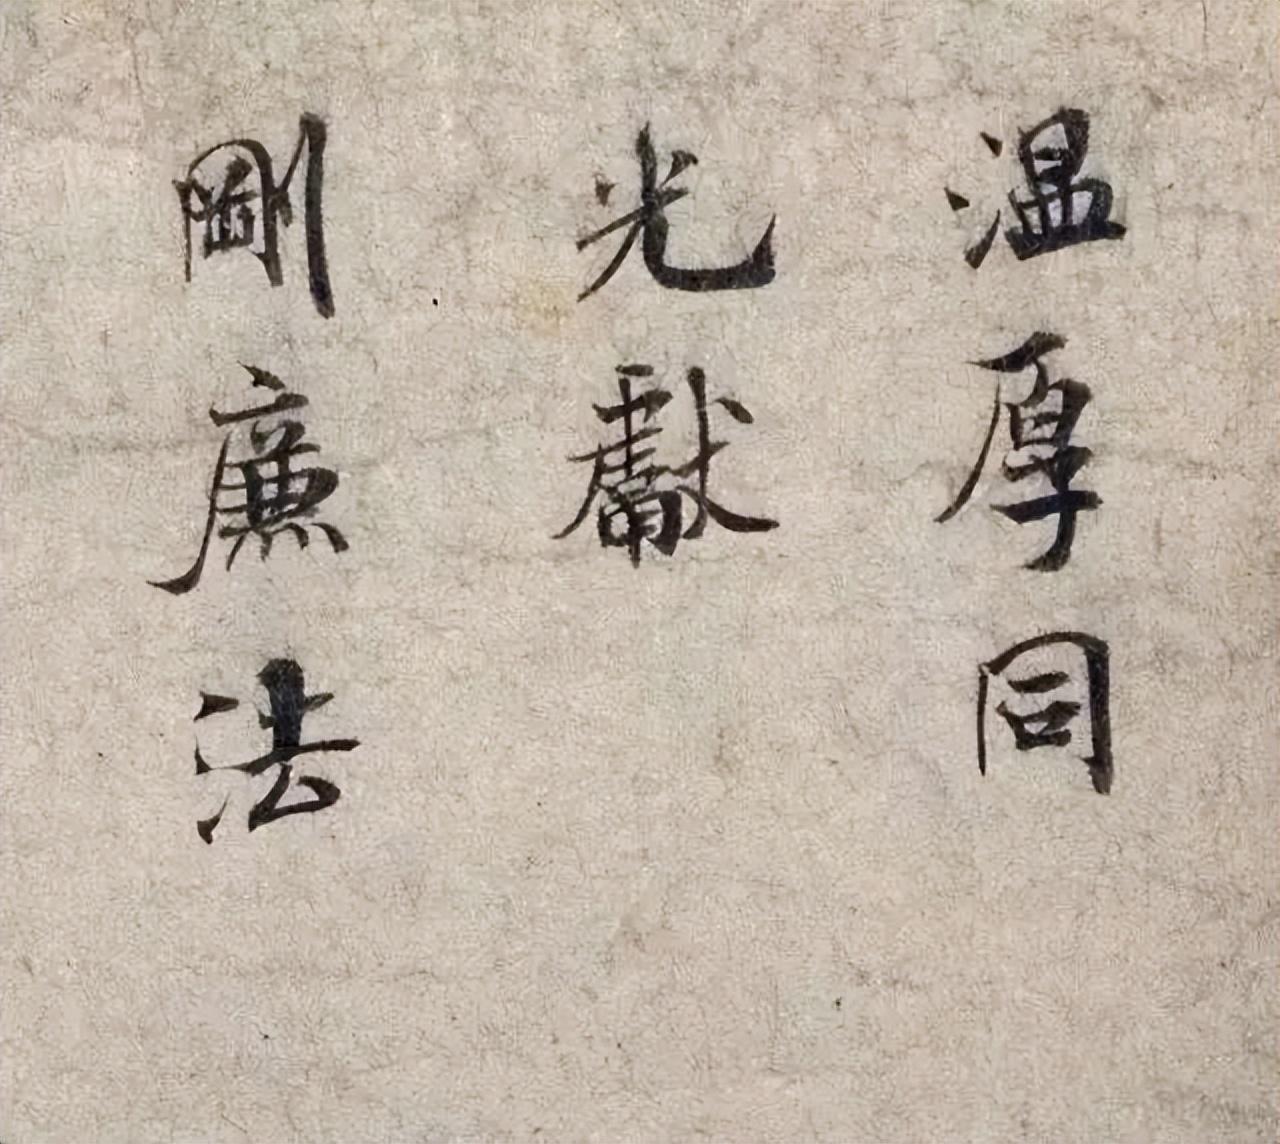 温厚同
光獻
剛廉法